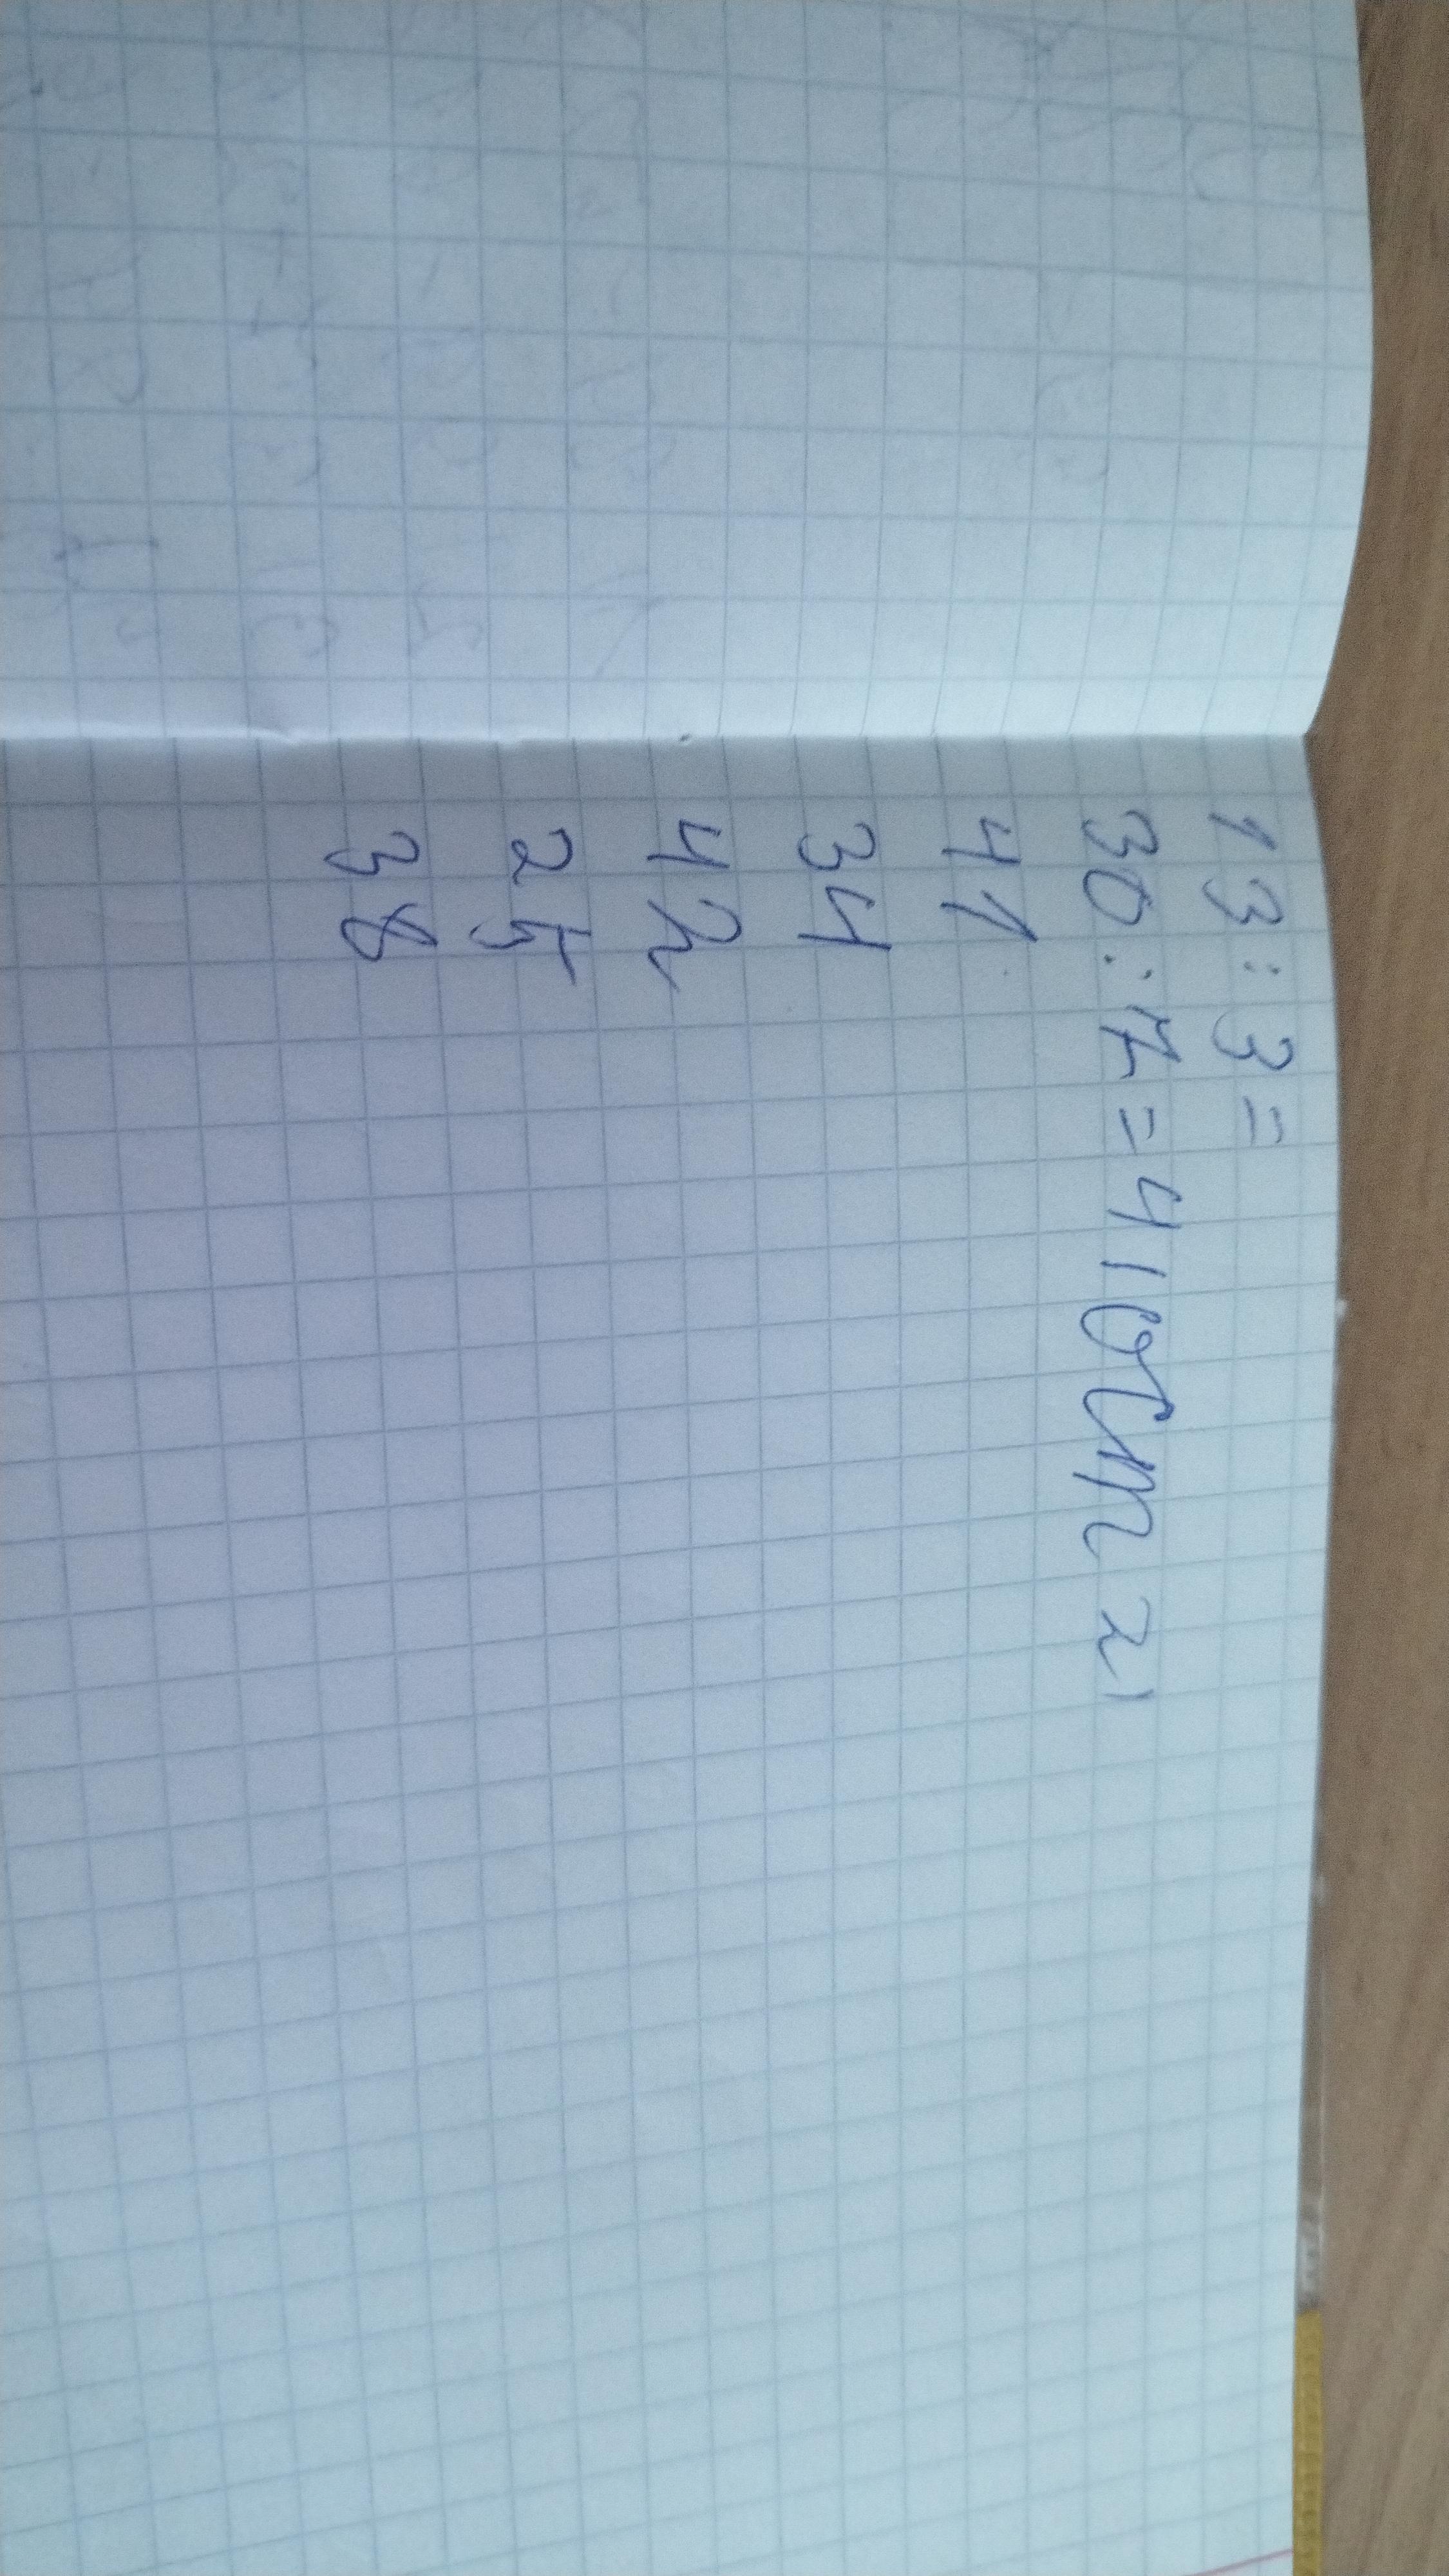 13:3=
30:7=4(ост 2)
41
34
42
25
38